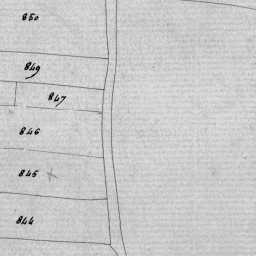 850
849
847
846
845
844